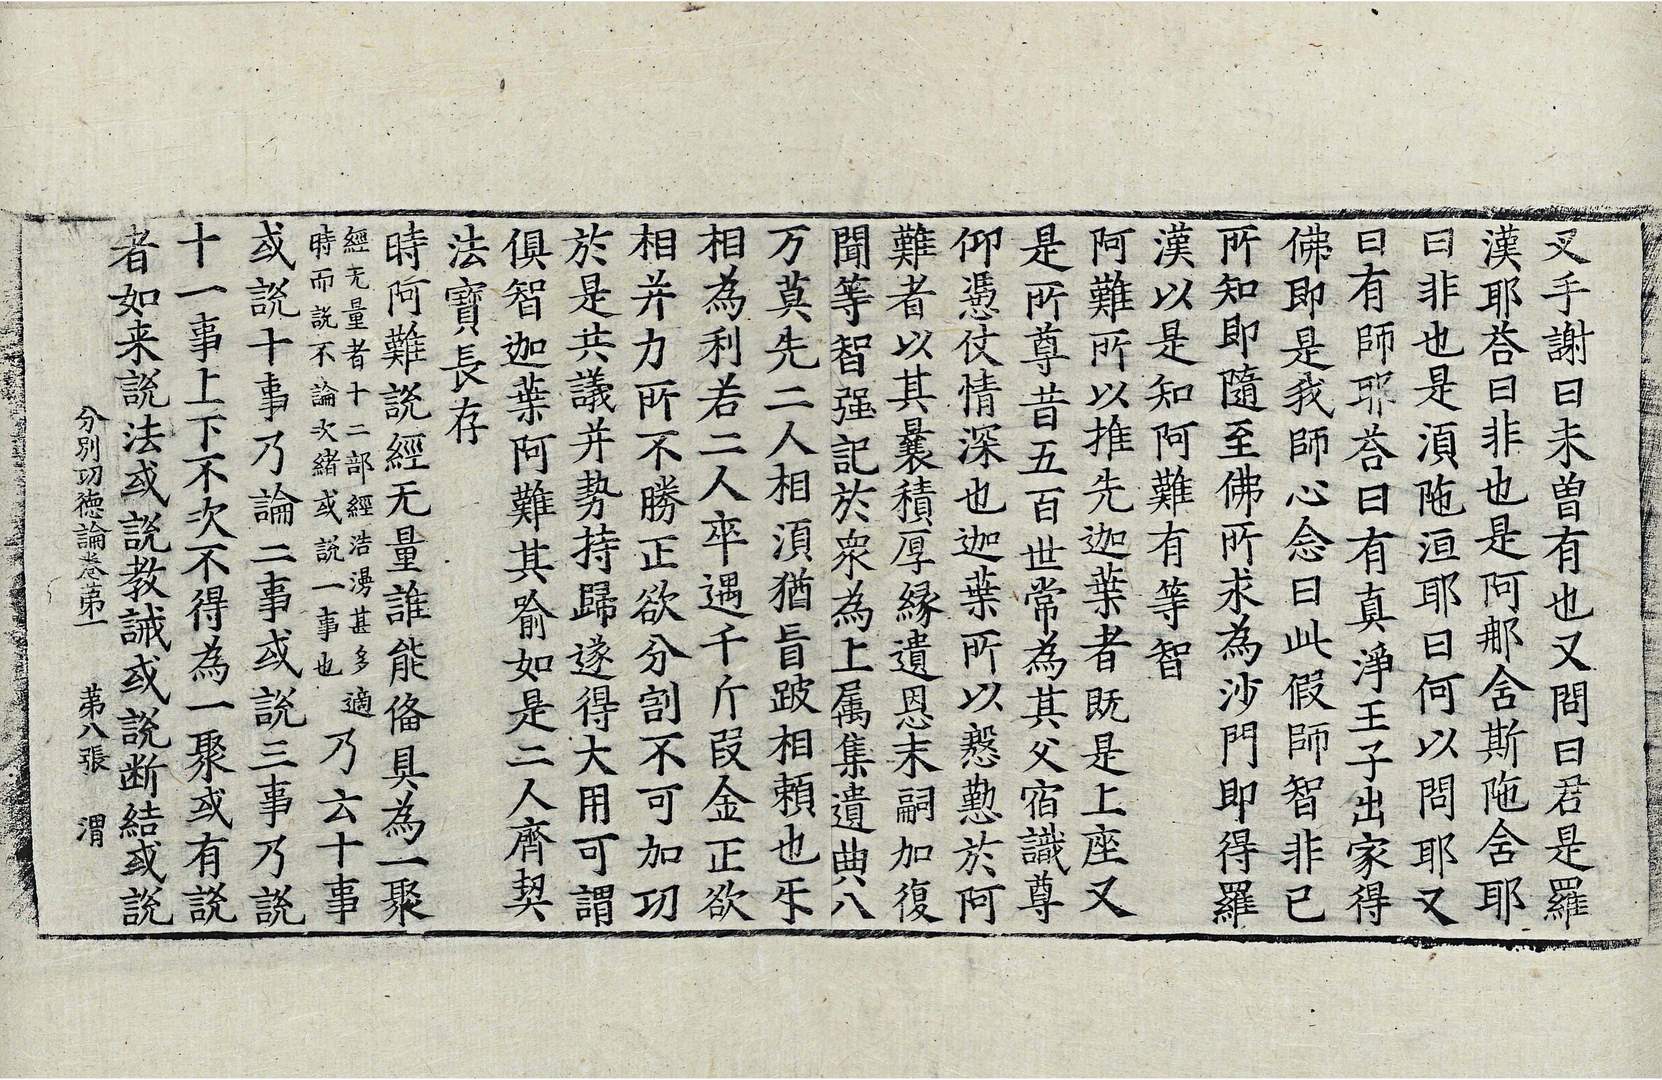 叉手謝曰未曽有也又問曰君是羅
漢耶荅曰非也是阿那舍斯陁舍耶
曰非也是湏陁洹耶曰何以問耶又
曰有師耶荅曰有真淨王子出家得
佛即是我師心念曰此假師智非已
所知即隨至佛所求為沙門即得羅
漢以是知阿難有等智
阿難所以推先迦葉者既是上座又
是所尊昔五百世常為其父宿識尊
仰憑仗情深也迦葉所以慇懃於阿
難者以其曩積厚縁遺恩末嗣加復
聞等智强記於衆為上属集遺典八
万莫先二人相湏猶盲跛相頼也𤘽
相為利若二人卒遇千斤段金正欲
相并力所不勝正欲分割不可加功
於是共議并勢持歸遂得大用可謂
俱智迦葉阿難其喻如是二人齊契
法寶長存
時阿難說經无量誰能俻具為一聚
經无量者十二部經浩湧甚多適
時而說不論次緒或說一事也
乃云十事
或說十事乃論二事或說三事乃說
十一事上下不次不得為一聚或有說
者如来說法或說教誡或說断結或說
分別功徳論卷苐一　苐八張　渭